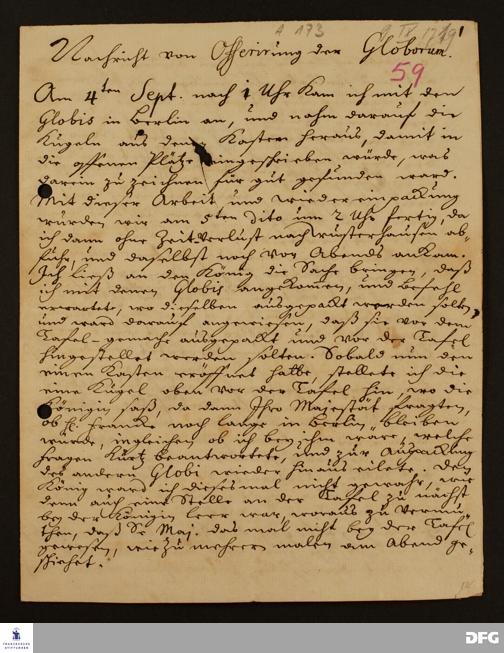 A 173
59
Nachricht von Offerirung der Globorum.
Am 4ten Sept. nach 1 Uhr kam ich mit den
Globis in Berlin an, und nahm darauf die
Kugeln aus dem Kasten heraus, damit in
die offenen Plätze eingeschrieben würde, was
darein zu zeichnen für gut gefunden ward.
Mit dieser Arbeit und wieder einpackung
wurden wir am 5ten dito um 2 Uhr fertig, da
ich dann ohne Zeitverlust nach Wusterhausen ab-
fuhr, und daselbst noch vor Abends ankam.
Ich ließ an den König die Sache bringen, daß
ich mit denen Globis angekommen, und befehl
erwartete, wo dieselben ausgepackt werden solten,
und ward darauf angewiesen, daß sie vor dem
Tafel-gemache ausgepackt und vor der Tafel
hingestellet werden solten. Sobald nun den
einen Kasten eröffnet hatte, stellete ich die
eine Kugel oben vor der Tafel hin, wo die
Königin saß, da dann Ihro Majestät fragten,
ob H. Franck noch lange in Berlin bleiben
würde, ingleichen ob ich bey ihm ware, welche
fragen kurtz beantwortete, und zur Auspackung
des andern Globi wieder hinaus eilete. Den
König ward ich diesesmal nicht gewahr, wie
denn auch eine Stelle an der Tafel zu nächst
bey der Königin leer war, woraus zu vermu-
then, daß Se Maj. das mal nicht bey der Tafel
gewesen, wie zu mehrern malen am Abend ge-
schiehet.
FRANCKESCHE STIFTUNGEN
DFG